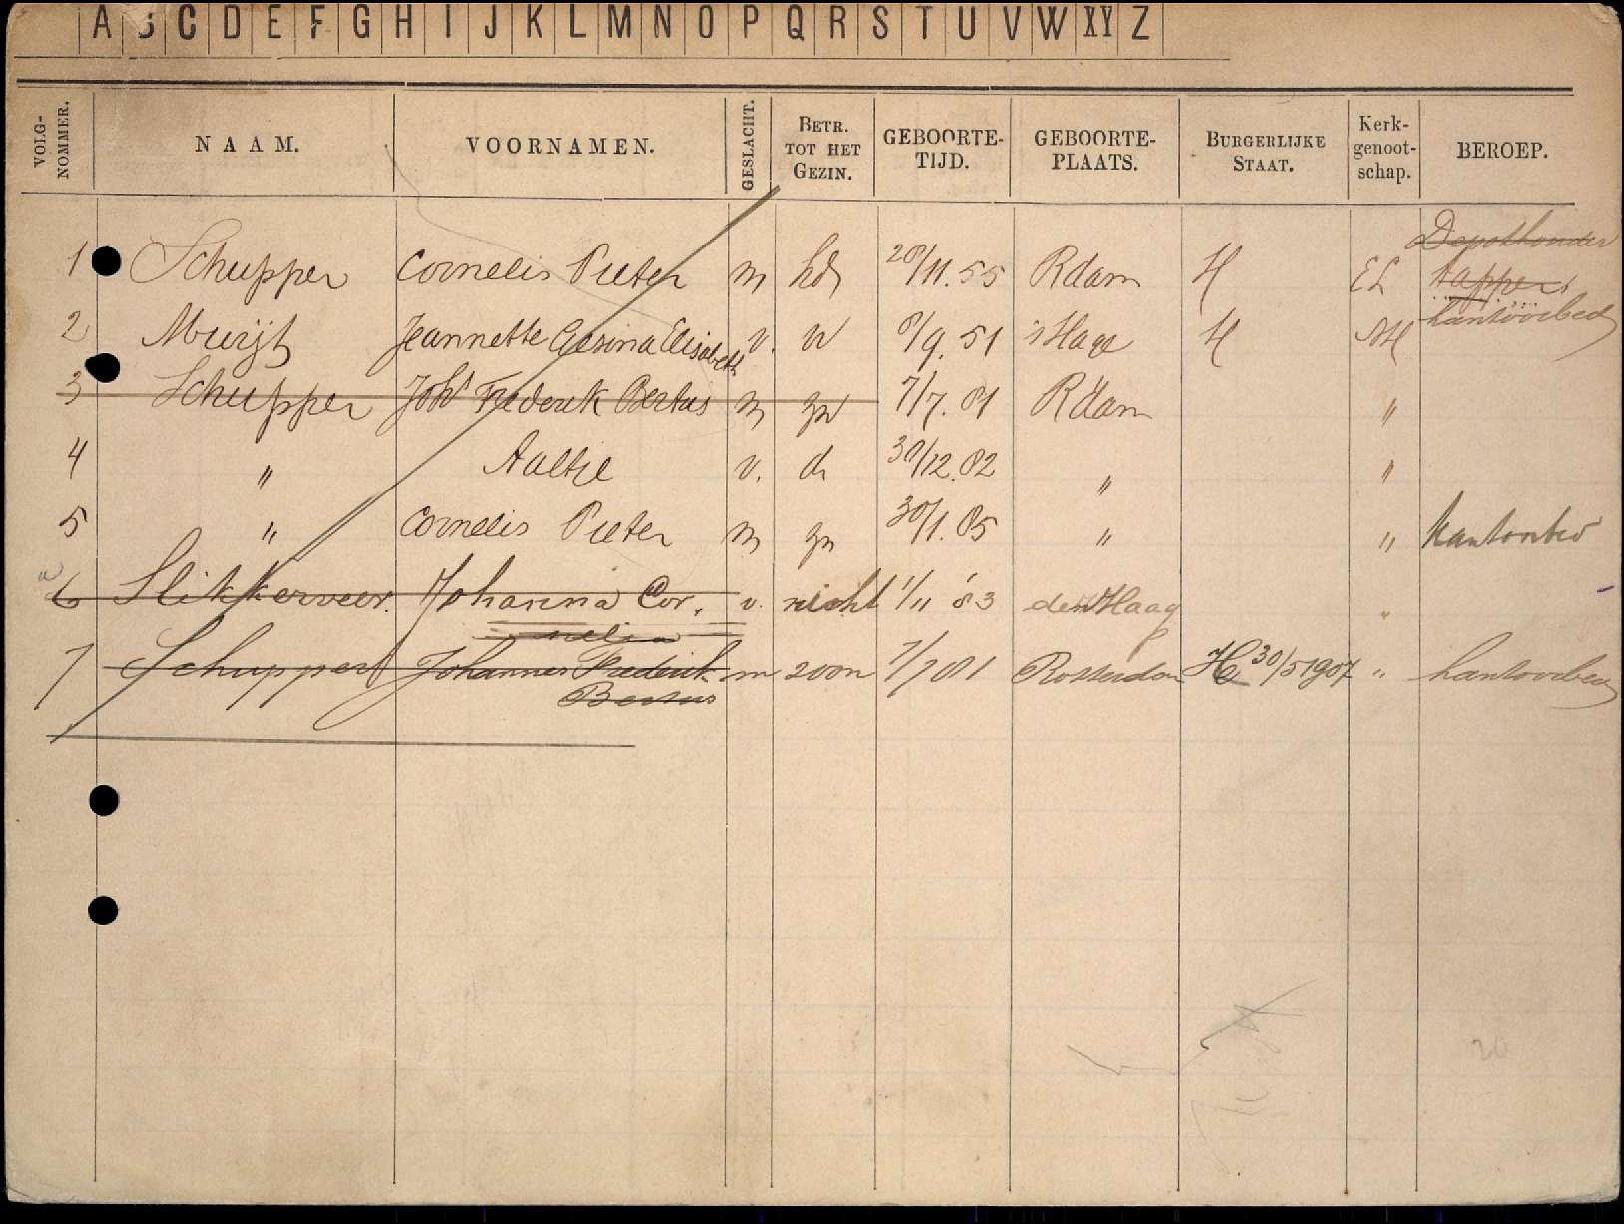 A B C D E F G H I J K L M N O P Q R S T U V W XY Z
VOLG-NOMMER. NAAM. VOORNAMEN. GESLACHT. BETR. TOT HET GEZIN. GEBOORTE-TIJD. GEBOORTE-PLAATS. BURGERLIJKE STAAT. Kerk-genoot-schap. BEROEP.
Depothouder
1 Schupper Cornelis Pieter m hd 28/11.55 Rdam H EL tapper
kantoorbed
2 Muijt Jeannette Gesina Elisabeth v. vr 8/9.51 'sHage H NH
3 Schupper Johs Frederik Bertus m zn 7/7.81 R'dam "
4 " Aaltje v. dr 30/12.82 " "
5 " Cornelis Pieter m zn 30/1.85 " " kantoorbed
6 Slikkerveer. Johanna Cor. v. nicht 1/11 83 den Haag "
nelia
7 Schupper Johannes Frederik m zoon 7/7 81 Rotterdam H 30/5 1907 " kantoorbed
Bertus
20